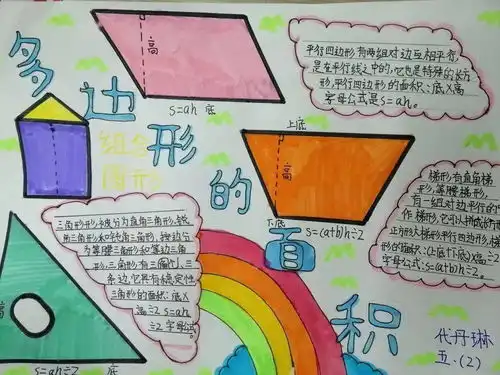 多边形的面积
高
S=ah 底
组合
图形
平行四边形,有两组对边互相平行,
是在平行线之中的,它也是特殊的长方
形,平行四边形的面积:底×高
字母公式是S=ah。
上底
高
下底
S=(a+b)h÷2
梯形:有直角梯
形,等腰梯形,
有一组对边平行的
作梯形,它可以拼成长方
正方形大梯形平行四边形,
形的面积:(上底+下底)×高÷2
字母公式:S=(a+b)h÷2。
三角形形,按角分为直角三角形,锐
角三角形和钝角三角形,按边分
为等腰三角形和等边三角
形,三角形有三个角,三
条边,它具有稳定性
三角形的面积:底×
高÷2 S=ah
÷2 字母公式。
高
S=ah÷2 底
代丹琳
五.(2)